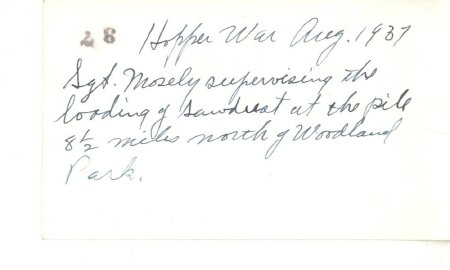 28 Hopper War Aug. 1937
Sgt. Mosely supervising the
loading of sawdust at the pile
8 1/2 miles north of Woodland
Park.